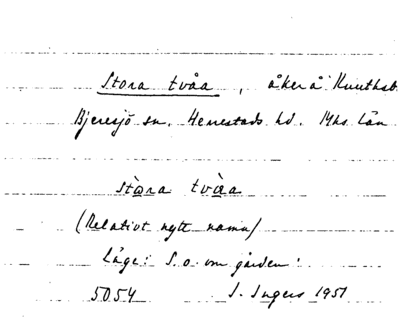 Stora tvåa, åker å Knuthab.
Bjeresjö sn. Herrestads hd. Mhs. län
stòra tvàa
(Relativt nytt namn)
Läge: S.o. om gården.
5054 I. Ingers 1951